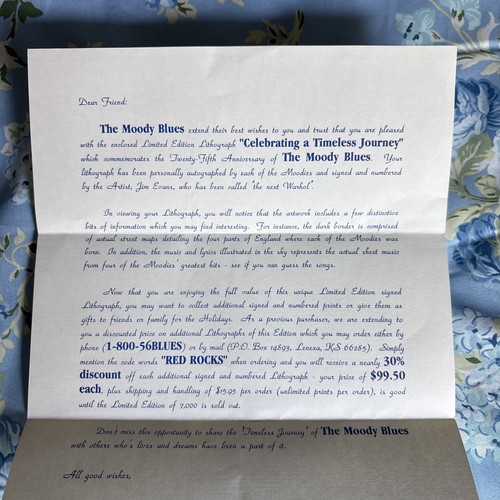 Dear Friend:
The Moody Blues extend their best wishes to you and trust that you are pleased
with the enclosed Limited Edition Lithograph "Celebrating a Timeless Journey"
which commemorates the Twenty-Fifth Anniversary of The Moody Blues. Your
lithograph has been personally autographed by each of the Moodies and signed and numbered
by the Artist, Jim Evans, who has been called "the next Warhol".
In viewing your Lithograph, you will notice that the artwork includes a few distinctive
bits of information which you may find interesting. For instance, the dark border is comprised
of actual street maps detailing the four parts of England where each of the Moodies was
born. In addition, the music and lyrics illustrated in the sky represents the actual sheet music
from four of the Moodies' greatest hits - see if you can guess the songs.
Now that you are enjoying the full value of this unique Limited Edition signed
Lithograph, you may want to collect additional signed and numbered prints or give them as
gifts to friends or family for the Holidays. As a previous purchaser, we are extending to
you a discounted price on additional Lithographs of this Edition which you may order either by
phone (1-800-56BLUES) or by mail (P.O. Box 14893, Lenexa, KS 66285). Simply
mention the code words "RED ROCKS" when ordering and you will receive a nearly 30%
discount off each additional signed and numbered Lithograph - your price of $99.50
each, plus shipping and handling of $15.95 per order (unlimited prints per order), is good
until the Limited Edition of 7,000 is sold out.
Don't miss this opportunity to share the "Timeless Journey" of The Moody Blues
with others who's lives and dreams have been a part of it.
All good wishes,